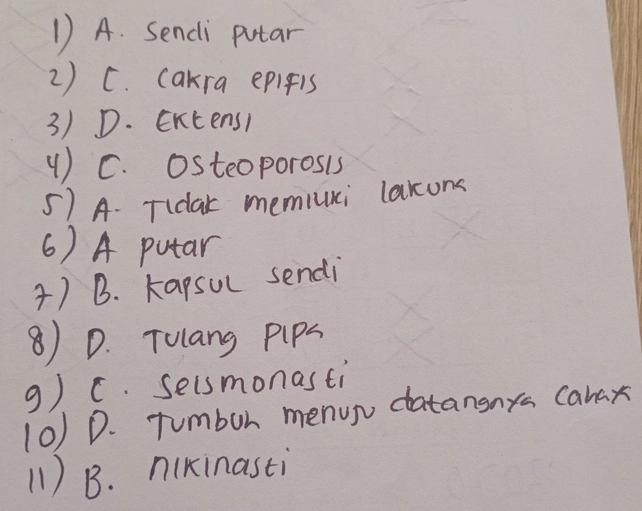 1) A. Sendi putar
2) C. cakra epifis
3) D. Ektensi
4) C. Osteoporosis
5) A. Tidak memiliki lakuna
6) A putar
7) B. kapsul sendi
8) D. Tulang pipa
9) C. Seismonasti
10) D. Tumbuh menuju datangnya cahaya
11) B. nikinasti